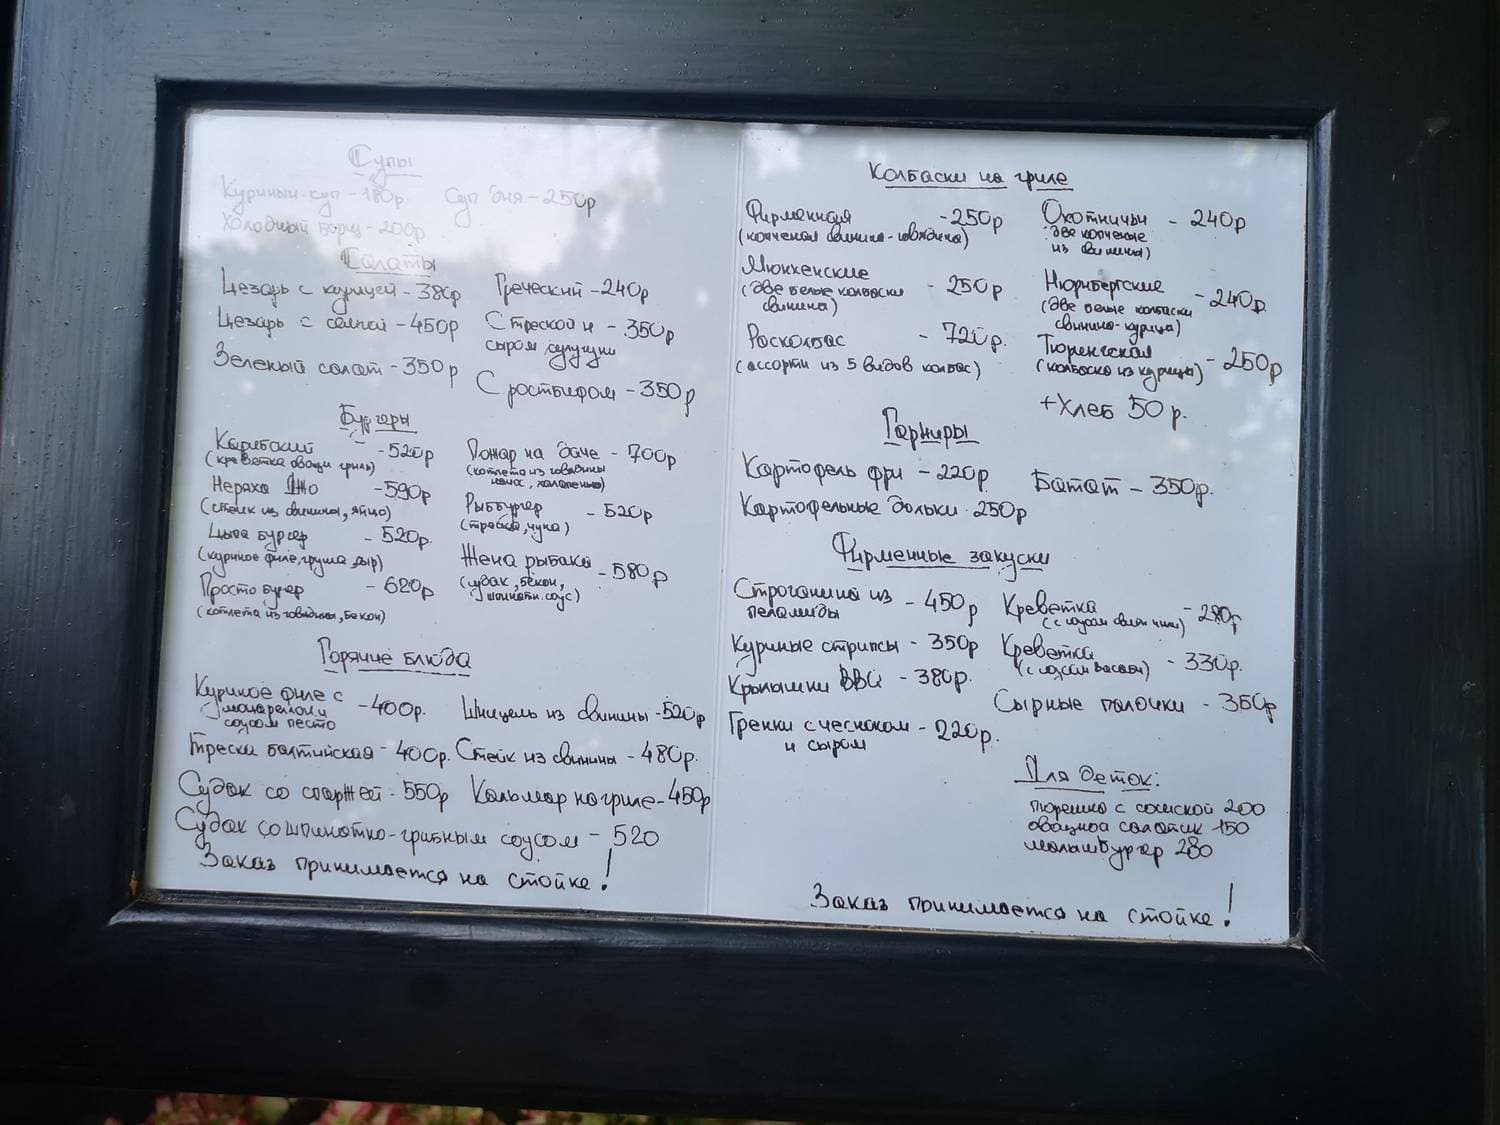 Супы
Куриный суп - 180р Суп дня - 250р
Холодный борщ - 200р
Салаты
Цезарь с курицей - 380р Греческий - 240р
Цезарь с семгой - 450р С треской и - 350р
сыром сулугуни
Зеленый салат - 350р
С ростбифом - 350р
Бургеры
Карибский - 520р
(креветка овощи гриль)
Неряха Джо - 590р
(стейк из свинины, яйцо)
Цыпа бургер - 520р.
(куриное филе, груша, сыр)
Просто бугер - 620р
(котлета из говядины, бекон)
Пожар на даче - 700р
(котлета из говядины
начос, халапеньо)
Рыббургер - 520р
(треска, чука)
Жена рыбака - 580р
(судак, бекон,
шпинатн. соус)
Горячие блюда
Куриное филе с - 400р.
моцареллой и
соусом песто
Шницель из свинины - 520р
Трески балтийская - 400р. Стейк из свинины - 480р.
Судак со спаржей - 550р Кальмар на гриле - 450р
Судак со шпинатно-грибным соусом - 520
Заказ принимается на стойке!
Колбаски на гриле
Фирменная - 250р
(копченая свинина-говядина)
Охотничьи - 240р
две копченые
из свинины)
Мюнхенские - 250р
(две белые колбаски
свинина)
Нюрнбергские - 240р.
(две белые колбаски
свинино-курица)
Росколбас - 720р.
(ассорти из 5 видов колбас)
Тюренгская - 250р
(колбаска из курицы)
+Хлеб 50р.
Гарниры
Картофель фри - 220р. Батат - 350р.
Картофельные дольки 250р
Фирменные закуски
Строганина из - 450р
пеламиды
Креветка - 280р
Куриные стрипсы - 350р
Креветка - 330р.
(с соусом васаби)
Крылышки BBQ - 380р.
Сырные палочки - 350р
Гренки с чесноком - 220р.
и сыром
Для деток:
пюрешка с сосиской 200
овощной салатик 150
малышбургер 280
Заказ принимается на стойке!